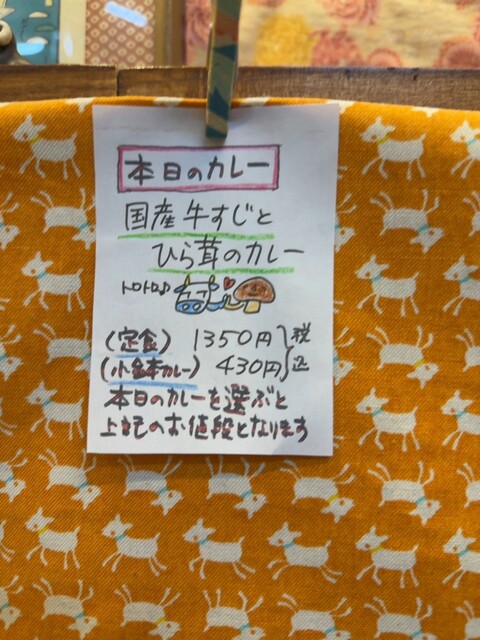 本日のカレー
国産牛すじと
ひら茸のカレー
トロトロ♪
(定食) 1350円
(小盛本カレー) 430円
税込
本日のカレーを選ぶと
上記のお値段となります